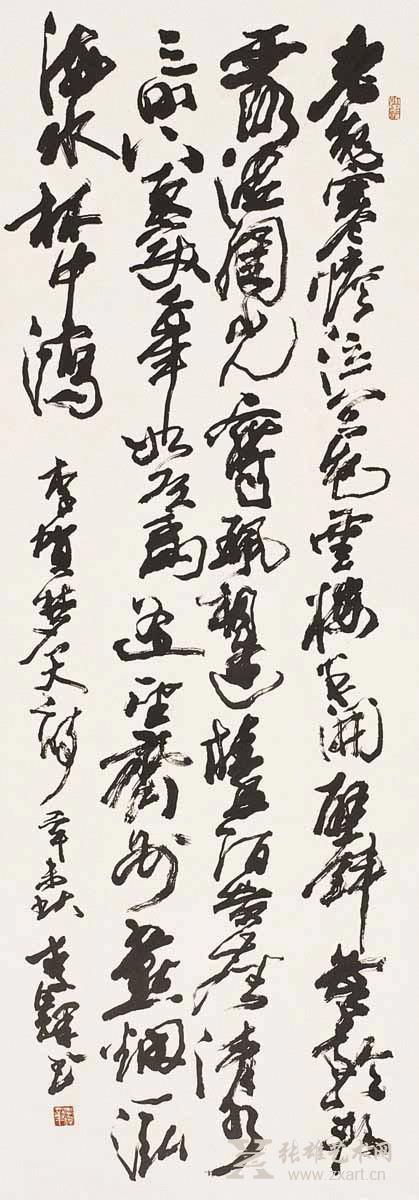 老兔寒蟾泣天色雲樓半開壁斜白玉輪軋
露濕團光鸞珮相逢桂香陌黃塵清水
三山下更變千年如走馬遙望齊州九點煙一泓
海水杯中瀉 李賀夢天詩 辛未秋 李鐸書
张雄艺术网
www.zxart.cn